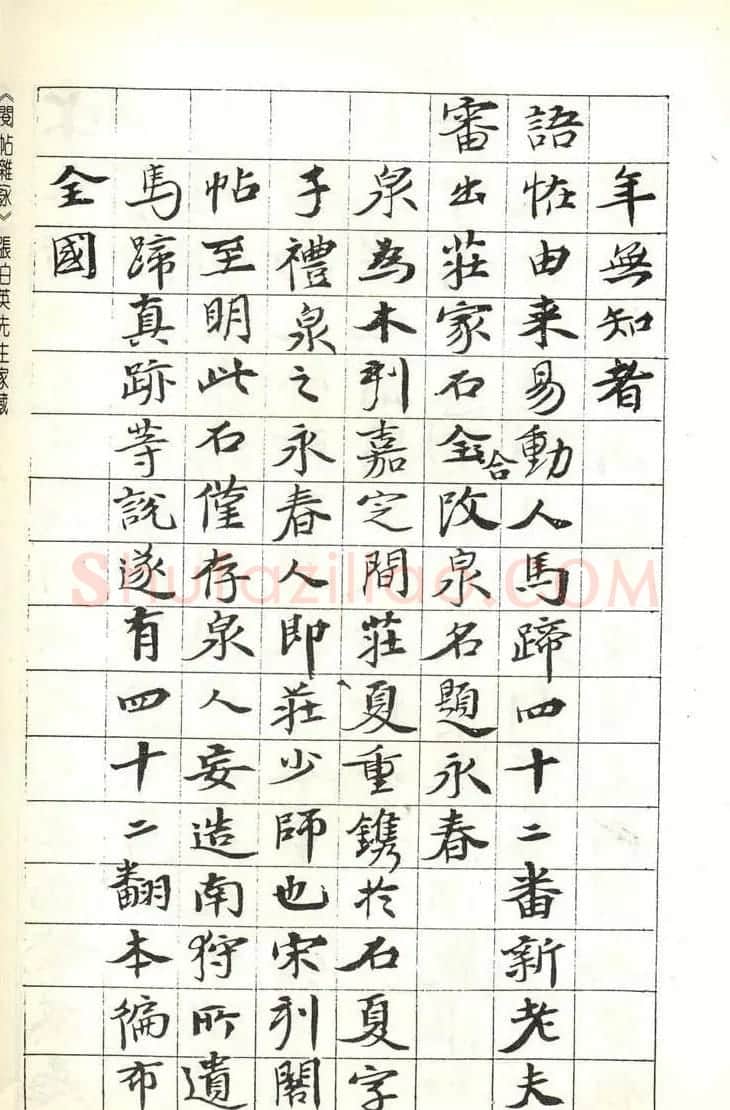 年無知者
語恠由来易動人馬蹄四十二番新老夫
審出莊家石全合改泉名題永春
泉為木刊嘉定間莊夏重鐫於石夏字
子禮泉之永春人即莊少師也宋刊閣
帖至明此石僅存泉人妄造南狩所遺
馬蹄真跡等說遂有四十二翻本徧布
全國
《閱帖雜詠》張伯英先生家藏
Shufaziliao.COM